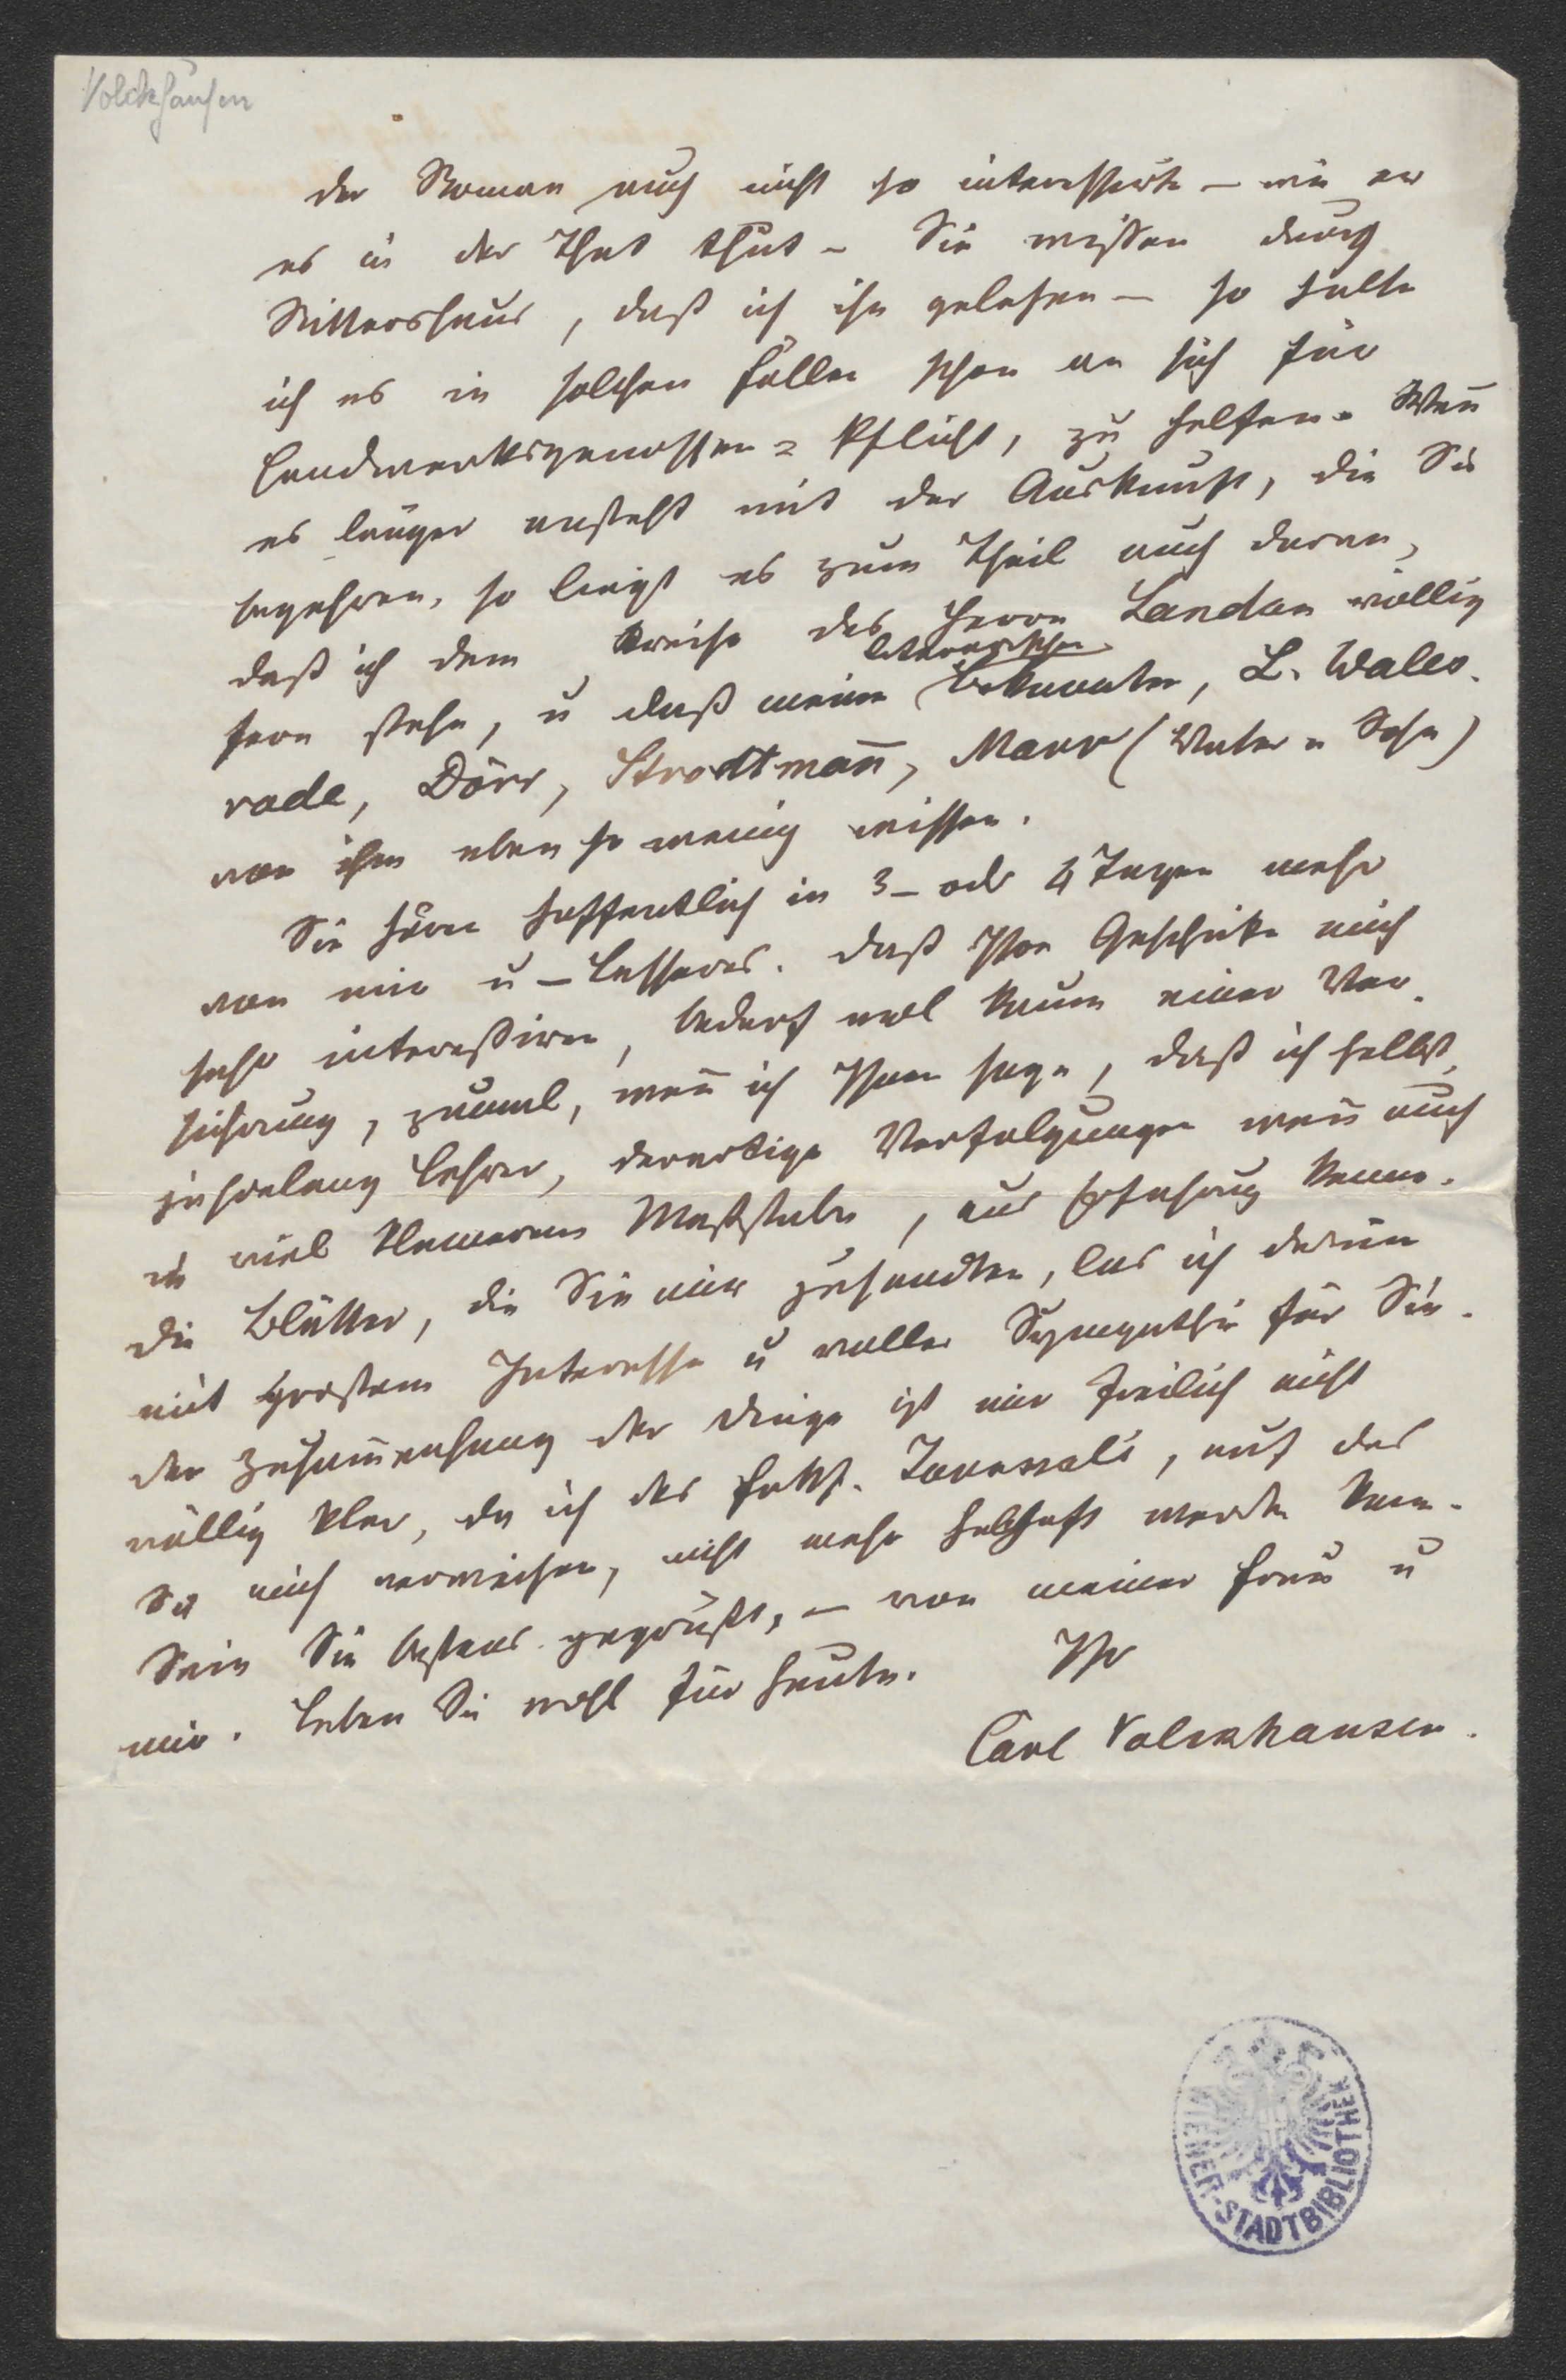 Volckhausen
der Roman auch nicht so interessirte – wie er
es in der That thut – Sie wissen durch
Rittershaus, daß ich ihn gelesen – so halte
ich es in solchen Fällen schon an sich für
Handwerksgenossen-Pflicht, zu helfen. Wen̄
es länger ansteht mit der Auskunft, die Sie
begehren, so liegt es zum Theil auch daran,
daß ich dem Kreise des Herrn Landau völlig
literarischen
fern stehe, u daß meine Bekannten, L. Wales-
rode, Dörr, Strodtman̄, Marr (Vater u Sohn)
von ihm eben so wenig wissen.
Sie hören hoffentlich in 3- oder 4 Tagen mehr
von mir u – Besseres. Daß Ihre Geschicke mich
sehr interessiren, bedarf wol kaum einer Ver-
sicherung, zumal, wen̄ ich Ihnen sage, daß ich selbst,
jahrelang Lehrer, derartige Verfolgungen wen̄ auch
in viel kleinerem Maßstabe, aus Erfahrung kenne.
Die Blätter, die Sie mir zusandten, las ich darum
mit großem Interesse u voller Sympathie für Sie.
Der Zusam̄enhang der Dinge ist mir freilich nicht
völlig klar, da ich des Feuill. , auf das
Sie mich verweisen, nicht mehr habhaft werden kann.
Sein Sie bestens gegrüßt, – von meiner Frau u
mir. Leben Sie wohl für heute. Ihr
Carl Volckhausen.
WIENER-STADTBIBLIOTHEK